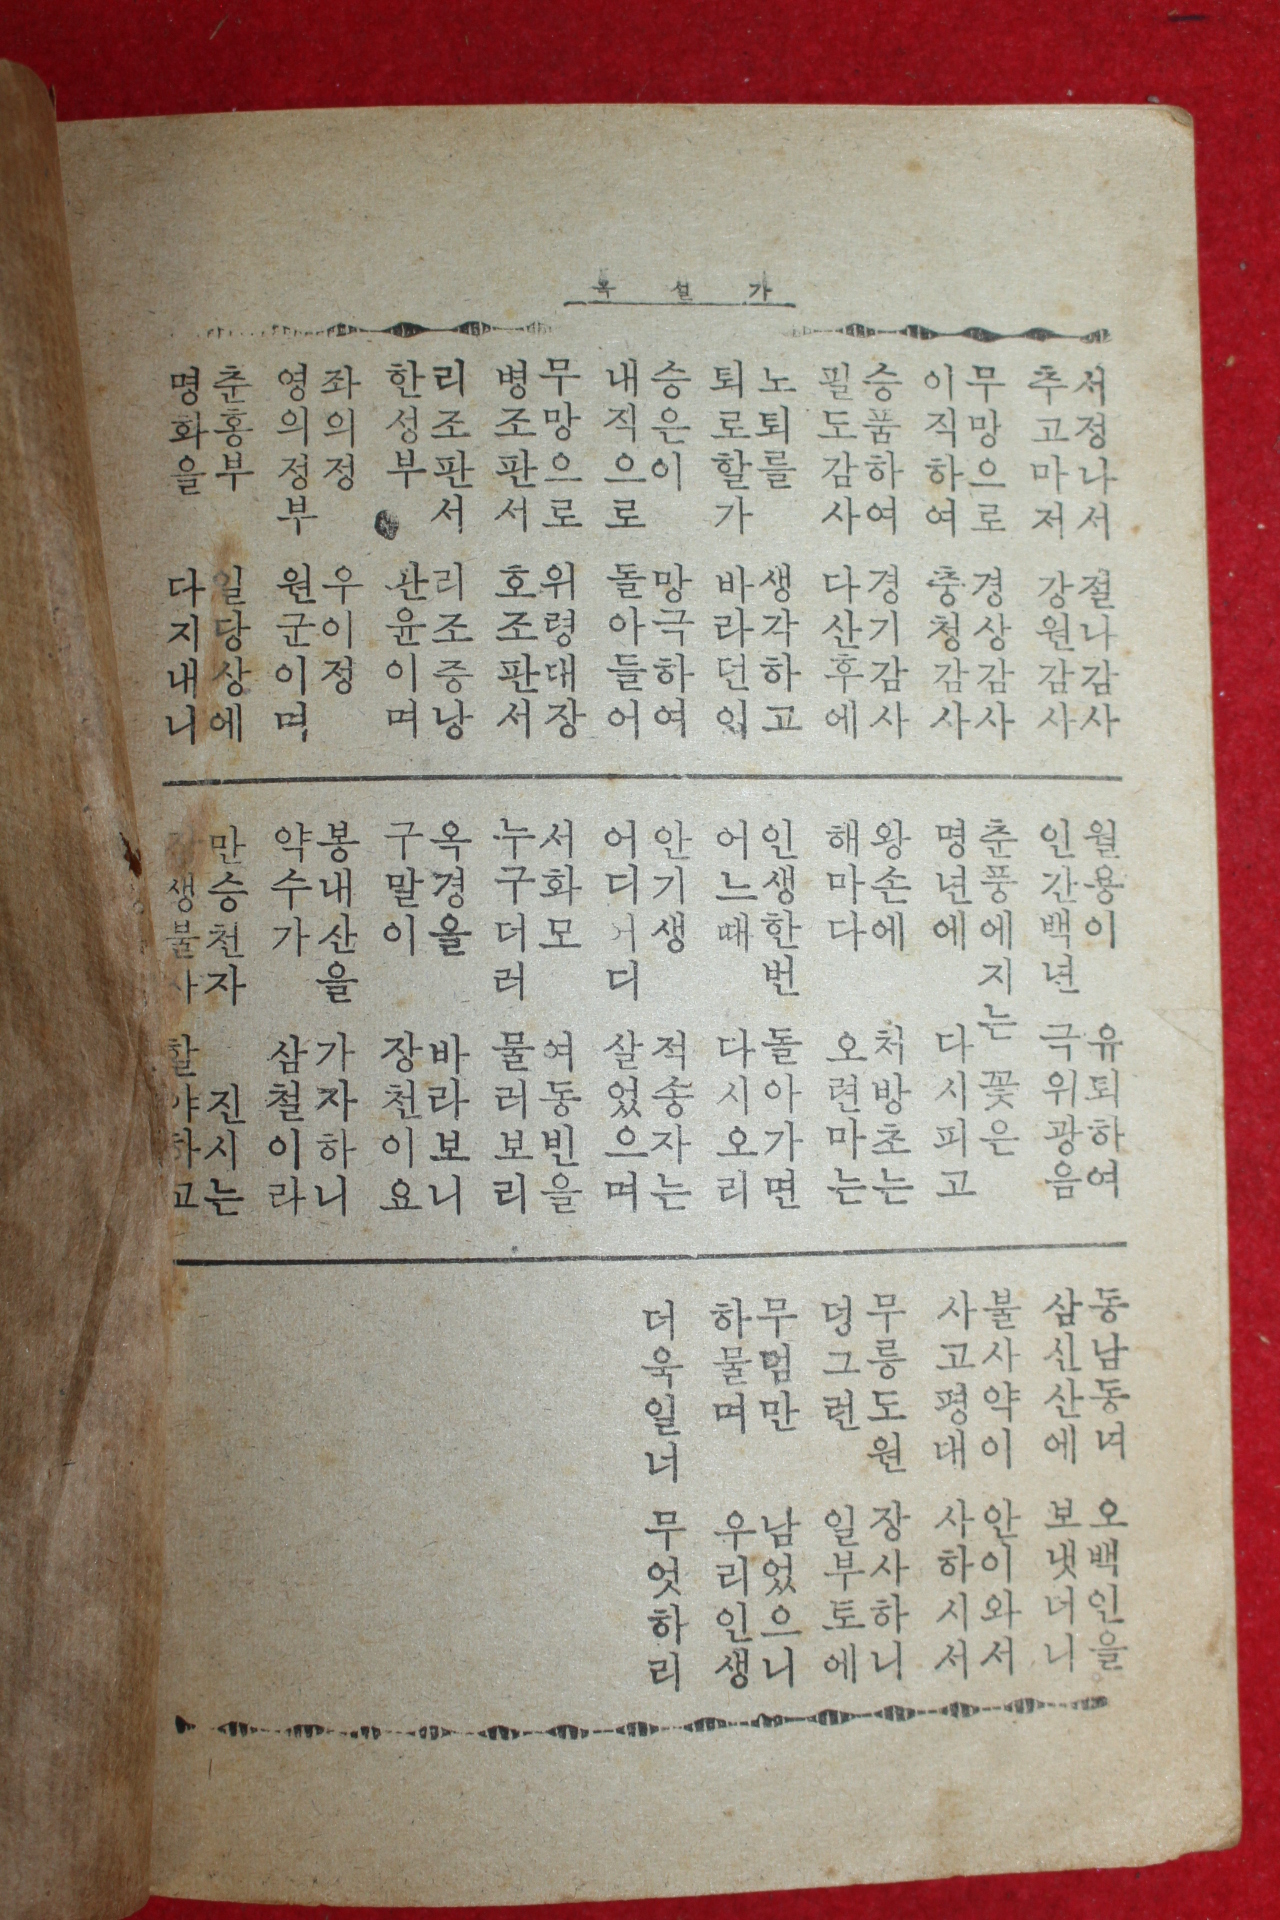 옥 설 가
서정나서 절나감사
추고마저 강원감사
무망으로 경상감사
이직하여 충청감사
승품하여 경기감사
필도감사 다산후에
노퇴를 생각하고
퇴로할가 바라던이
승은이 망극하여
내직으로 돌아들어
무망으로 위령대장
병조판서 호조판서
리조판서 리조중낭
한성부 판윤이며
좌의정 우이정
영의정부 원군이며
춘홍부 일당상에
명화을 다지내니
월용이 유퇴하여
인간백년 극위광음
춘풍에지는 꽃은
명년에 다시피고
왕손에 처방초는
해마다 오련마는
인생한번 돌아가면
어느때 다시오리
안기생 적송자는
어디어디 살었으며
서화모 여동빈을
누구더러 물러보리
옥경을 바라보니
구말이 장천이요
봉내산을 가자하니
약수가 삼철이라
만승천자 진시는
할야하고
동남동녀 오백인을
삼신산에 보냇더니
불사약이 안이와서
사고평대 사하시서
무릉도원 장사하니
덩그런 일부토에
무덤만 남었으니
하물며 우리인생
더욱일너 무엇하리